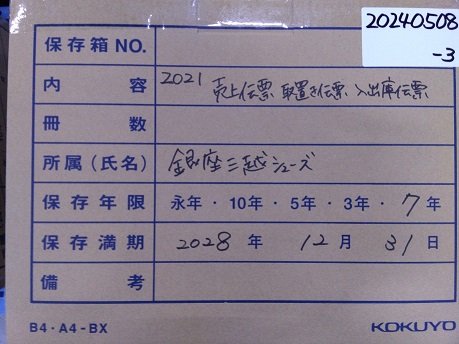 20240508
-3
保存箱NO.
内容 2021 売上伝票 取置き伝票 入出庫伝票
冊数
所属(氏名) 銀座三越シューズ
保存年限 永年・10年・5年・3年・7年
保存満期 2028年 12月 31日
備考
B4・A4-BX KOKUYO